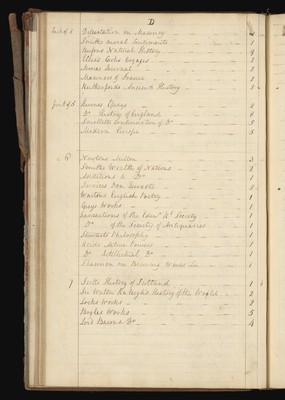 D
Dissertation on Masonry 1
Smiths moral Sentiments 1
Buffons Natural History
Cooks Voyages
Journal 1
Manners of France 1
Rutherfords Ancient History
Humes Essays
Do History of England
Smolletts Continuation of Do 5
Modern Europe 5
6 Newtons Milton 3
Smiths Wealth of Nations
Additions to Do 1
Jarvises Don Quixote
Wartons English Poetry 1
Grays Works 1
Transactions of the Edinr Rl Society 1
Do of the Society of Antiquaries 1
Stewarts Philosophy 1
Reids Active Powers 1
Do Intellectual Do 1
Shannon on Brewing 1
7 History of Scotland 1
Sir Walter Raleighs History of the World 2
Lockes Works 2
Boyles Works 5
Lord Bacons Do 4